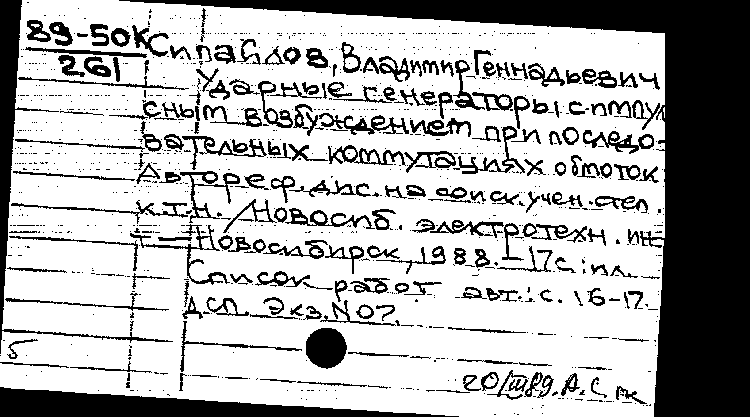 89-50К
261
Сипайлов, Владимир Геннадьевич
Ударные генераторы с импуль
сным возбуждением при последо-
вательных коммутациях обмоток
Автореф. дис. на соиск. учен. степ.
к.т.н. / Новосиб. электротехн. ин-
т — Новосибирск, 1988. — 17с.: ил.
Список работ авт.: с. 16-17.
ДСП. Экз. N 07.
5
20/III 89. А.С.